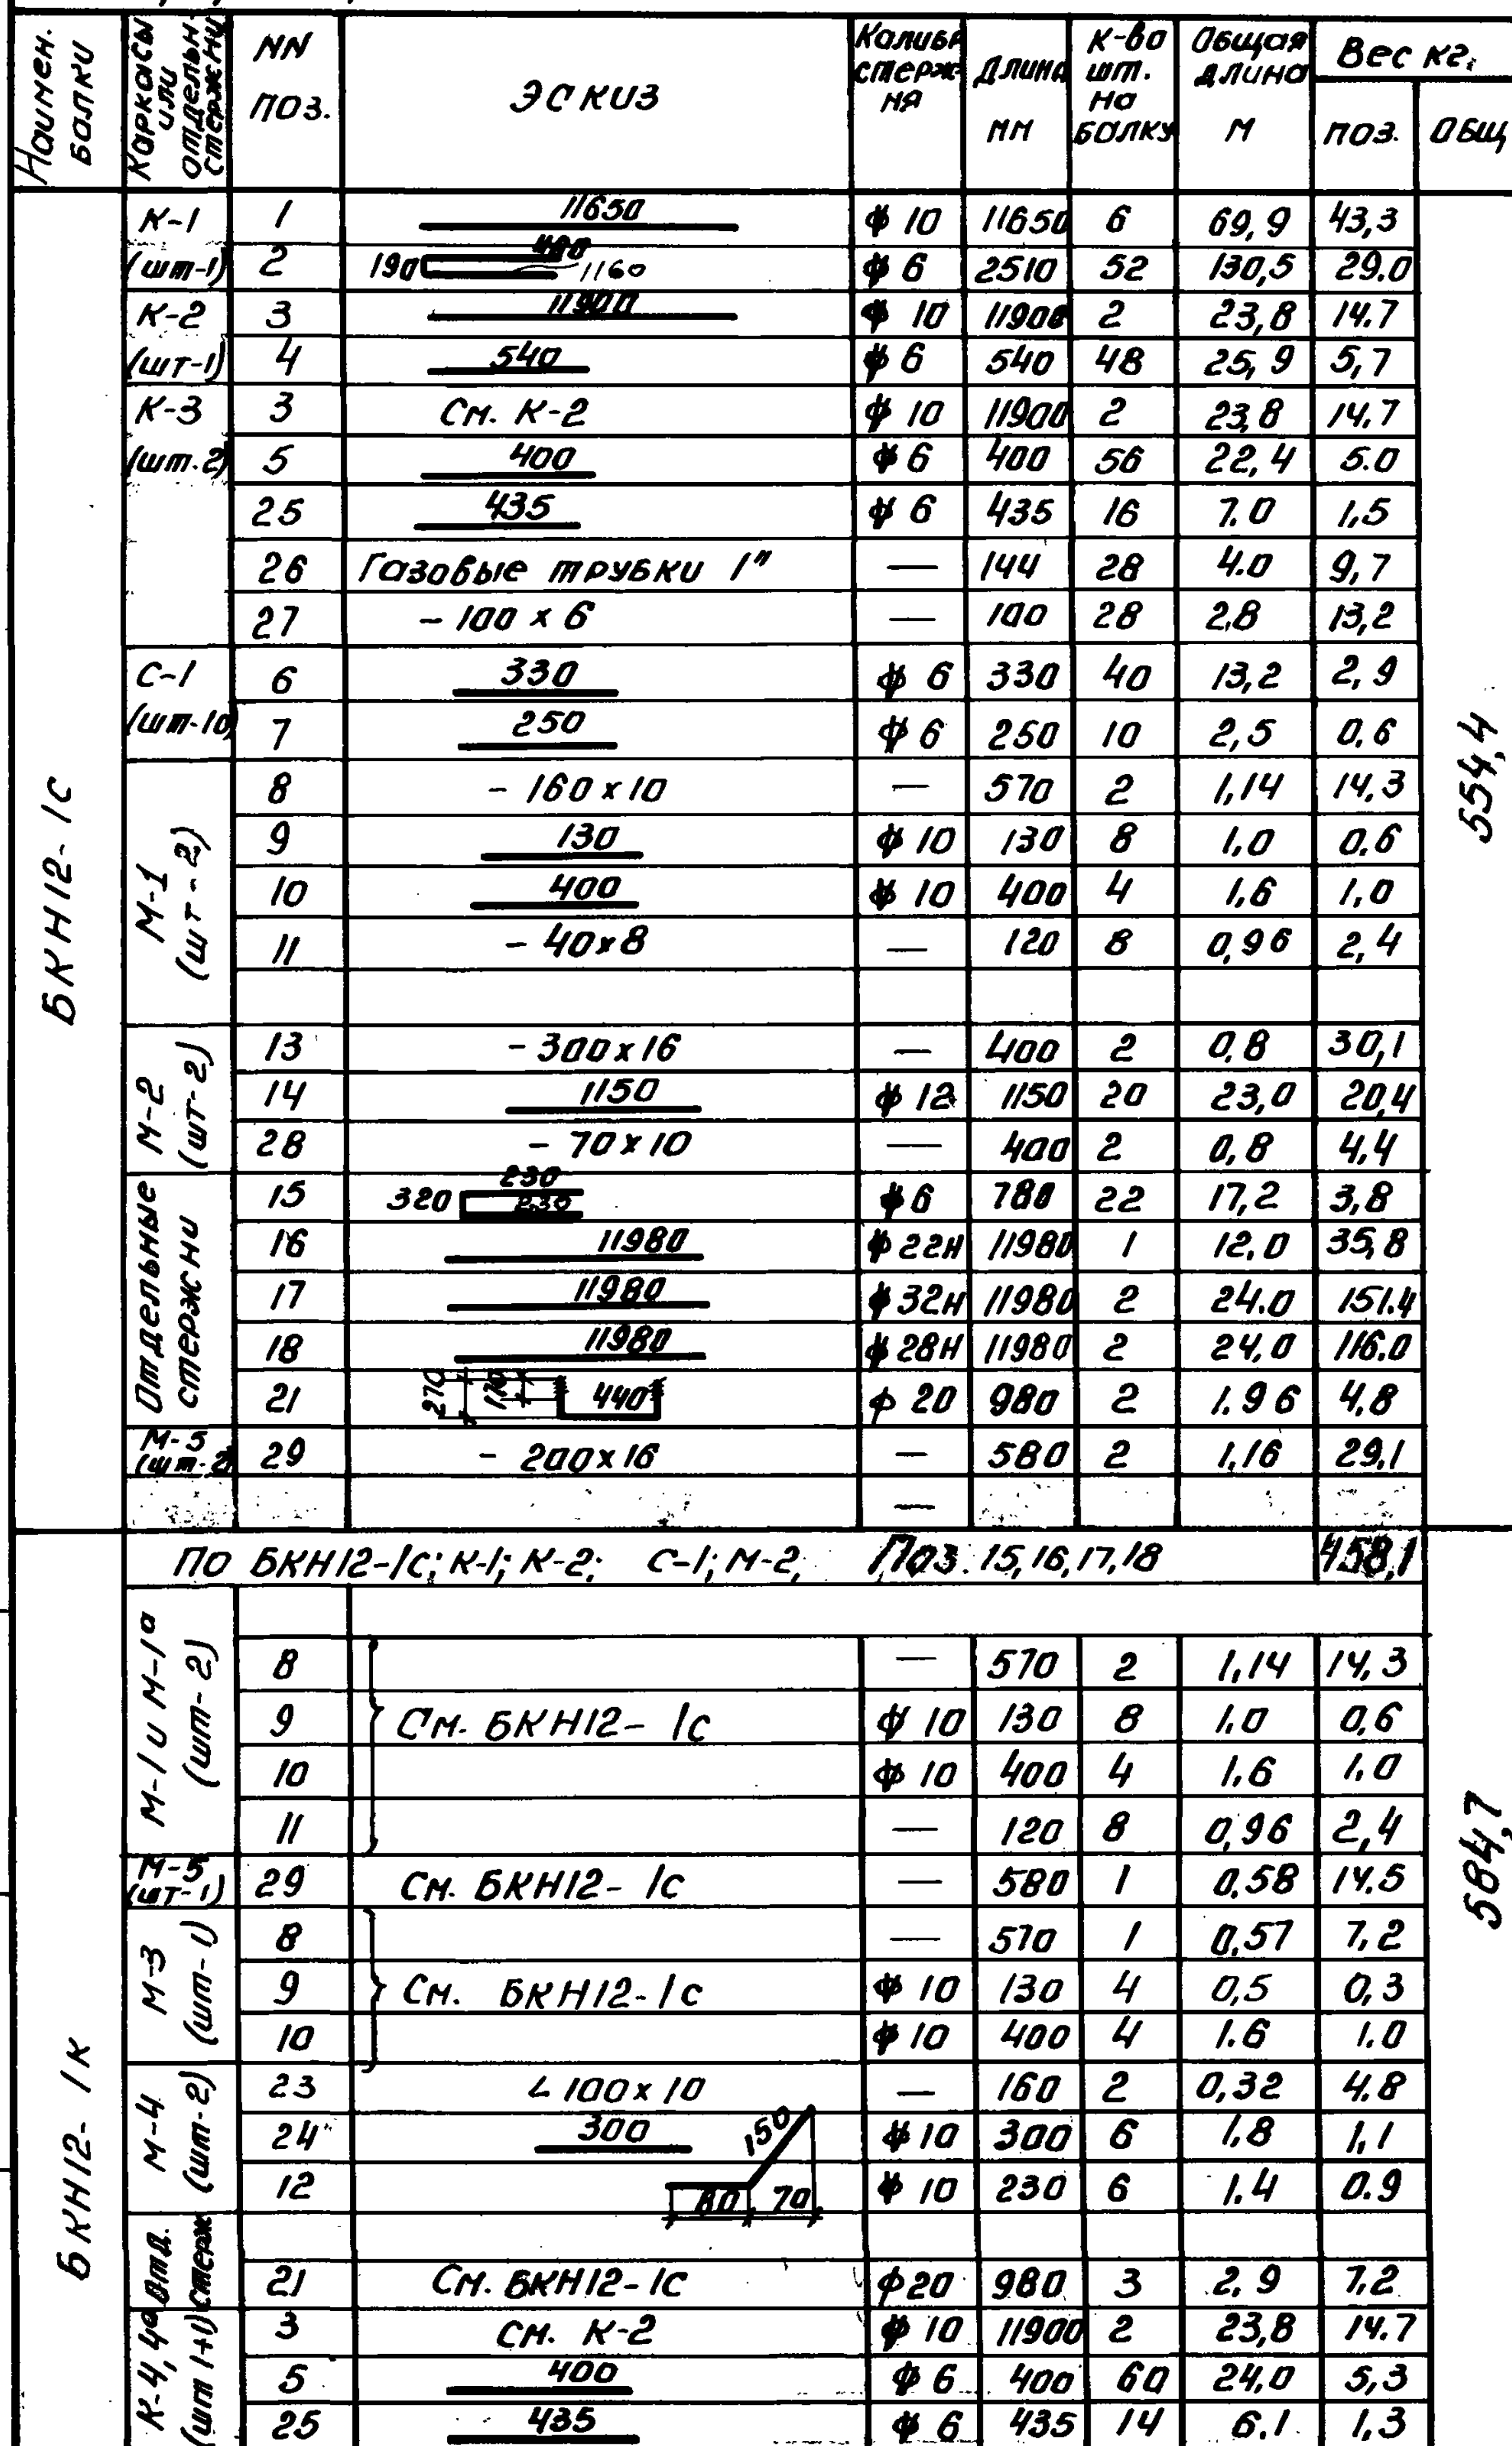 Наимен. балки | Каркасы или отдельн. стержни | NN поз. | Эскиз | Калибр стержня | Длина мм | К-во шт. на балку | Общая длина м | Вес кг. поз. | общ
БКН12-1с | 554,4
К-1 (шт-1) | 1 | 11650 | ϕ 10 | 11650 | 6 | 69,9 | 43,3
2 | 190 1160 | ϕ 6 | 2510 | 52 | 130,5 | 29.0
К-2 (шт-1) | 3 | 11900 | ϕ 10 | 11900 | 2 | 23,8 | 14.7
4 | 540 | ϕ 6 | 540 | 48 | 25,9 | 5,7
К-3 (шт.2) | 3 | См. К-2 | ϕ 10 | 11900 | 2 | 23,8 | 14,7
5 | 400 | ϕ 6 | 400 | 56 | 22,4 | 5.0
25 | 435 | ϕ 6 | 435 | 16 | 7.0 | 1,5
26 | Газовые трубки 1" | — | 144 | 28 | 4.0 | 9,7
27 | - 100 x 6 | — | 100 | 28 | 2,8 | 13,2
С-1 (шт-10) | 6 | 330 | ϕ 6 | 330 | 40 | 13,2 | 2,9
7 | 250 | ϕ 6 | 250 | 10 | 2,5 | 0,6
М-1 (шт-2) | 8 | - 160 x 10 | — | 570 | 2 | 1,14 | 14,3
9 | 130 | ϕ 10 | 130 | 8 | 1,0 | 0,6
10 | 400 | ϕ 10 | 400 | 4 | 1,6 | 1,0
11 | - 40x8 | — | 120 | 8 | 0,96 | 2,4
М-2 (шт-2) | 13 | - 300 x 16 | — | 400 | 2 | 0,8 | 30,1
14 | 1150 | ϕ 12 | 1150 | 20 | 23,0 | 20,4
28 | - 70 x 10 | — | 400 | 2 | 0,8 | 4,4
Отдельные стержни | 15 | 320 230 230 | ϕ 6 | 780 | 22 | 17,2 | 3,8
16 | 11980 | ϕ 22н | 11980 | 1 | 12.0 | 35,8
17 | 11980 | ϕ 32н | 11980 | 2 | 24.0 | 151.4
18 | 11980 | ϕ 28н | 11980 | 2 | 24,0 | 116.0
21 | 270 170 440 | ϕ 20 | 980 | 2 | 1.96 | 4,8
М-5 (шт-2) | 29 | - 200x16 | — | 580 | 2 | 1,16 | 29,1
—
По БКН12-1с; К-1; К-2; С-1; М-2, Поз. 15,16,17,18 | 458,1
БКН12-1к | 584,7
М-1 и М-1а (шт-2) | 8 | — | 570 | 2 | 1,14 | 14,3
9 | См. БКН12-1с | ϕ 10 | 130 | 8 | 1.0 | 0,6
10 | ϕ 10 | 400 | 4 | 1.6 | 1.0
11 | — | 120 | 8 | 0,96 | 2,4
М-5 (шт-1) | 29 | См. БКН12-1с | — | 580 | 1 | 0,58 | 14.5
М-3 (шт-1) | 8 | — | 570 | 1 | 0,57 | 7,2
9 | См. БКН12-1с | ϕ 10 | 130 | 4 | 0,5 | 0,3
10 | ϕ 10 | 400 | 4 | 1.6 | 1.0
М-4 (шт-2) | 23 | ∟ 100 x 10 | — | 160 | 2 | 0,32 | 4.8
24 | 300 | ϕ 10 | 300 | 6 | 1,8 | 1,1
12 | 150 80 70 | ϕ 10 | 230 | 6 | 1.4 | 0.9
Отд. стерж | 21 | См. БКН12-1с | ϕ 20 | 980 | 3 | 2,9 | 7,2
К-4, 4а (шт 1+1) | 3 | См. К-2 | ϕ 10 | 11900 | 2 | 23,8 | 14.7
5 | 400 | ϕ 6 | 400 | 60 | 24,0 | 5,3
25 | 435 | ϕ 6 | 435 | 14 | 6.1 | 1,3